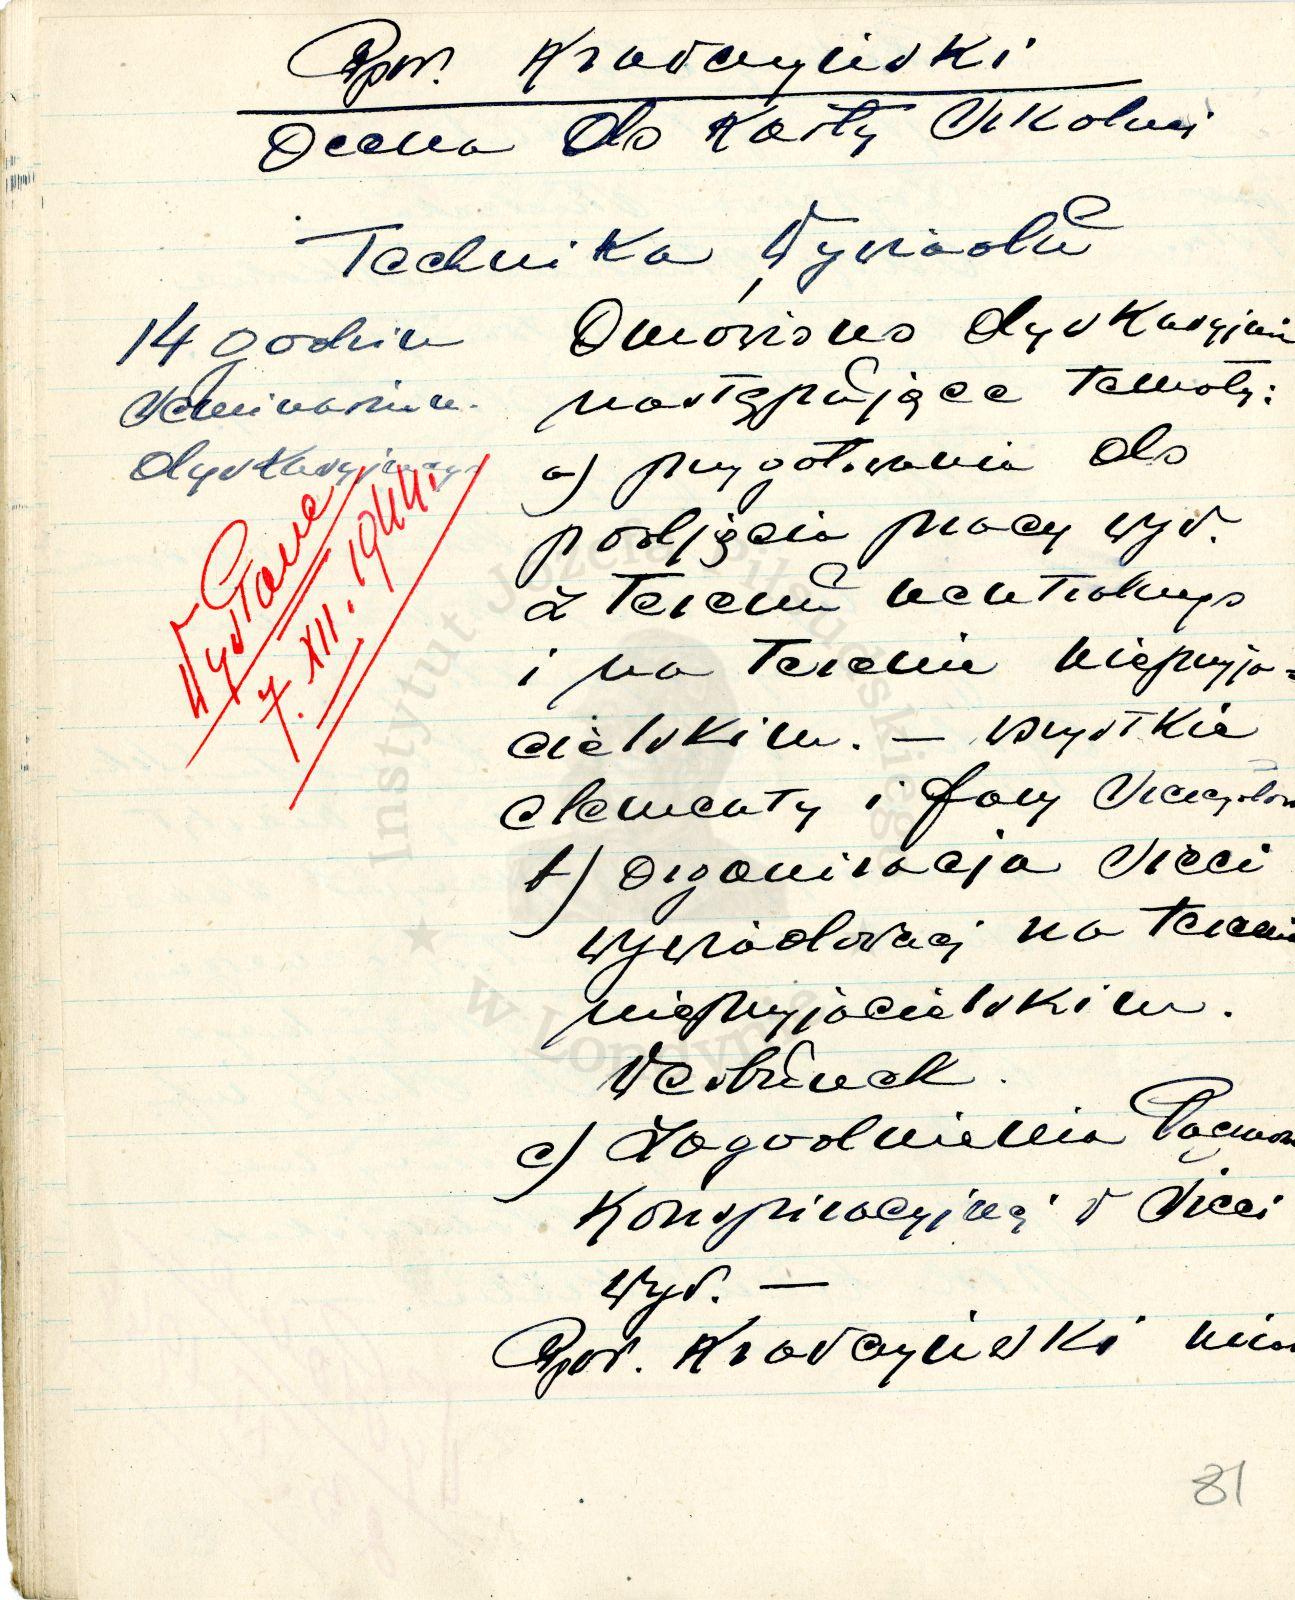 Ppor. Krasczyński
Ocena do Karty Szkolnej
Technika Wywiadu
14 godzin
seminarium.
dyskusyjnego
Wysłane
7. XII. 1944.
Omówiono dyskusyjnie
następujące tematy:
a) przygotowania do
podjęcia pracy wyw.
z terenu neutralnego
i na terenie nieprzyja=
cielskim. — wszystkie
elementy i fazy
b) Organizacja sieci
wywiadowczej na terenie
nieprzyjacielskim.
Werbunek.
c) Zagadnienia łączności
Konspiracyjnej w sieci
wyw. —
Ppor. Krasczyński
81
Instytut Józefa Piłsudskiego
w Londynie